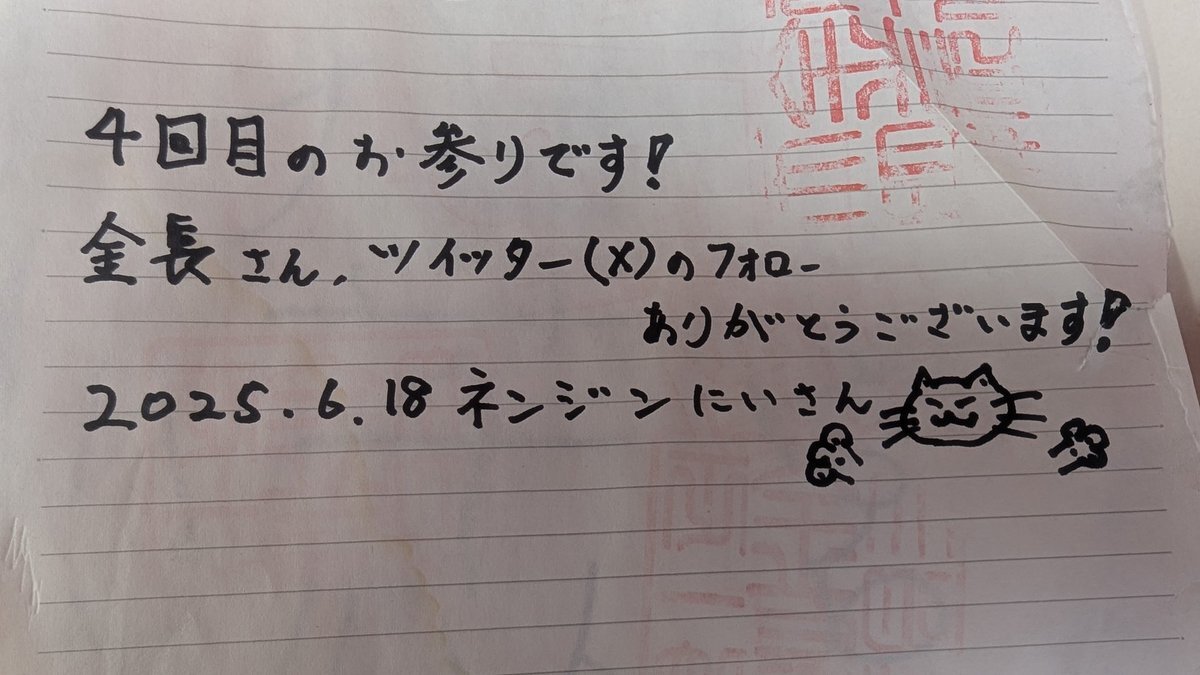 4回目のお参りです!
金長さん、ツイッター(X)のフォロー
ありがとうございます!
2025.6.18 ネンジンにいさん